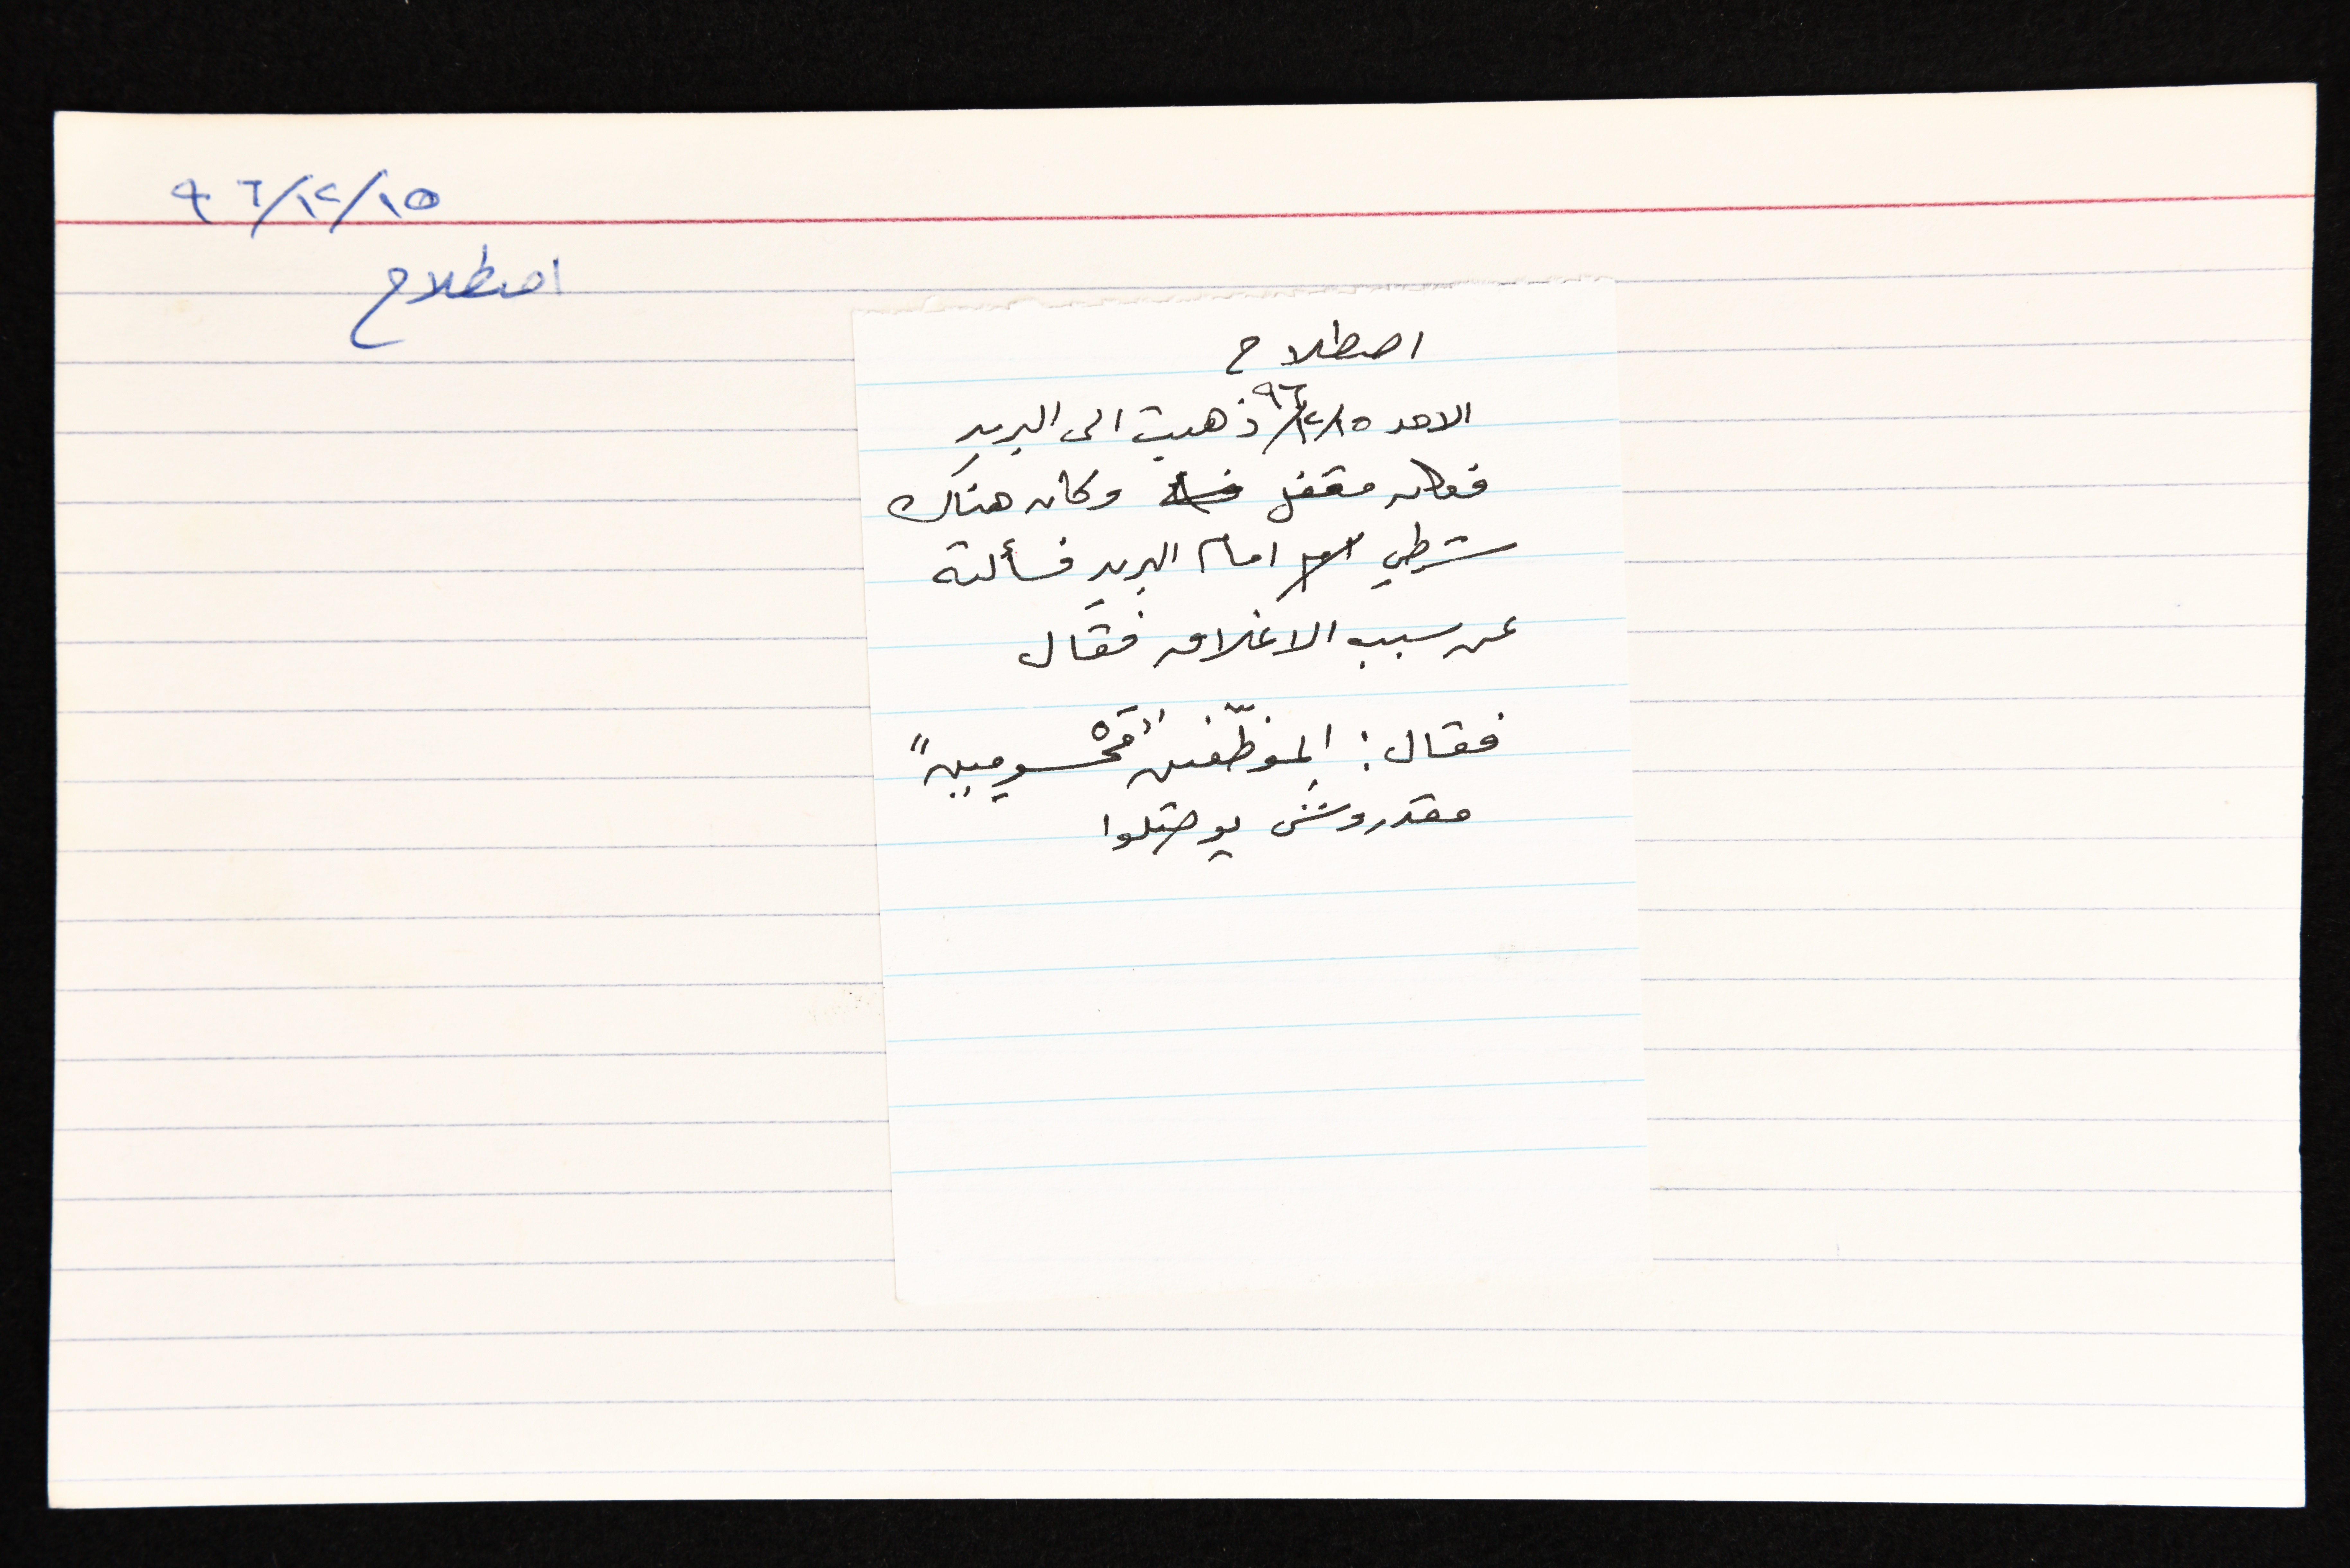 ٩٦/١٢/١٥
اصطلاح
اصطلاح
الاحد ٩٦/١٢/١٥ ذهبت الى البريد
فكان مقفل وكان هناك
شرطي امام البريد فسألته
عن سبب الاغلاق فقال
فقال: الموظّفين "مَحْسومين"
مقدروش يوصلوا